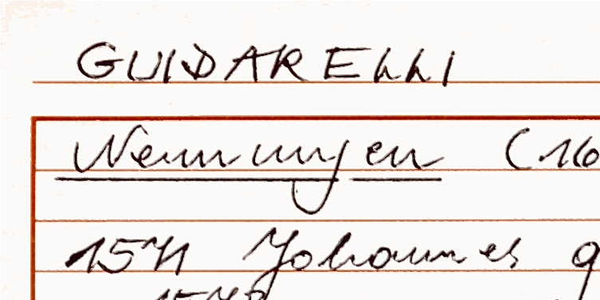 GUIDARELLI
Nennungen (16
1571 Johannes g
1578